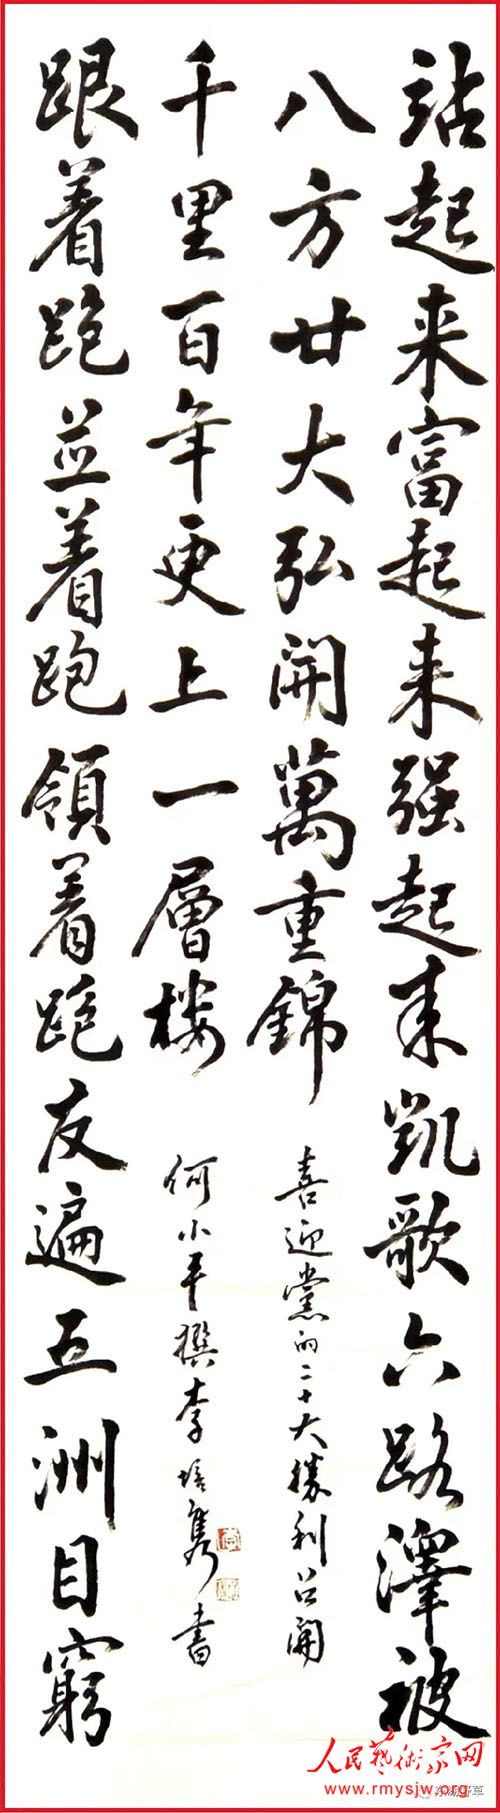 站起来富起来强起来凯歌六路澤被
八方廿大弘開萬重錦
喜迎黨的二十大勝利召開
跟着跑並着跑領着跑友遍五洲目窮
千里百年更上一層楼
何小平撰李培雋書
人民藝術家网
www.rmysjw.org